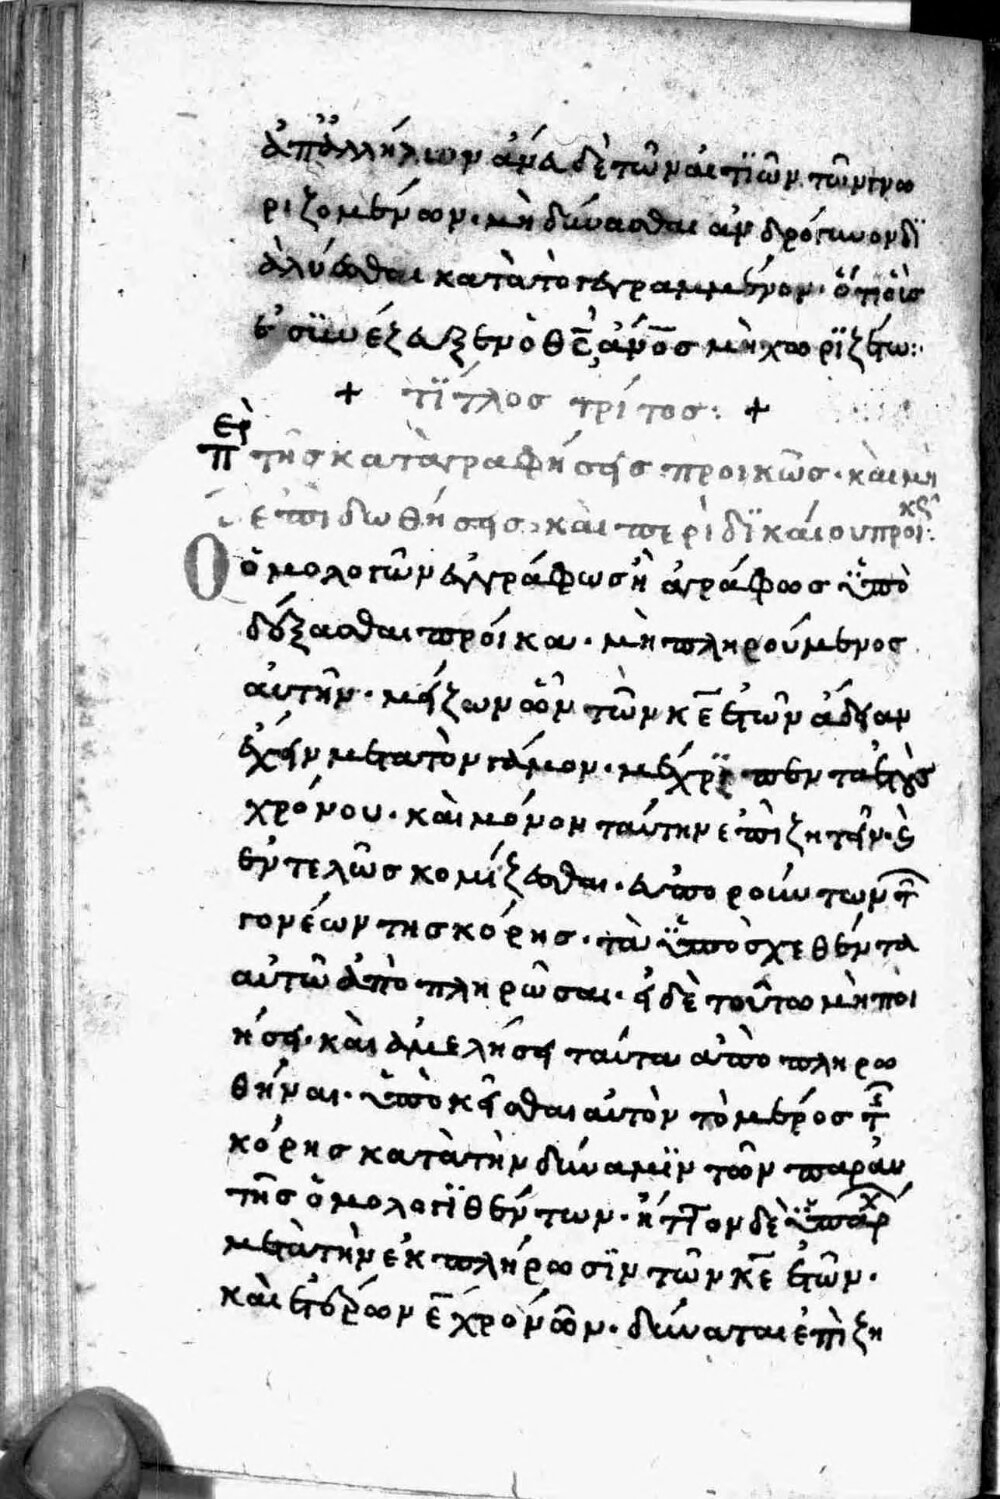 ἀπ ἀλλήλων ἄνδ δὲ τῶν αἰτϊῶν τῶν γνω
ριζομένων. μὴ δύνασθαι ἀνδρόγυνον δϊ
ἀλύεσθαι κατὰ τὸ γεγραμμένον. ὅτι οὓς
ὁ θς̅ ἄνο̅σ μὴ χωρϊζέτω:
+ τϊτλος τρίτος: +
Περὶ τῆς καταγραφήσης προικῶς. καὶ μὴ
ἐπιδωθήσης. καὶ περὶ δϊκαίου προικς:
Ὁ ὁμολογῶν ἐγγράφως ἢ ἀγράφως ὑπο
δέξασθαι προίκα. μὴ πληρούμενος
αὐτὴν. μείζων ὢν τῶν κε̅ ἐτῶν ἄδειαν
ἔχειν μετὰ τὸν γάμον. μέχρϊ πενταετοῦς
χρόνου. καὶ μόνον ταύτην ἐπιζητεῖν. ἢ
ἐντελῶς κομίζεσθαι. εὐπορούντων τ̑
γονέων τησ κόρης. τὰ ὑποσχεθέντα
αὐτῶ ἀποπληρῶσαι. εἰ δὲ τοῦτω μὴ ποι
ήσει. καὶ ἀμελήσει ταύτα ἀποπληρω
θήναι. ὑποκεῖσθαι αὐτὸν τὸ μέρος τ̑
κόρης κατὰ τὴν δύναμϊν τῶν παρ αὐ
τῆς ὁμολογϊθέντων. ἥττον δὲ ὑπάρχ
μετὰ τὴν ἐκπλήρωσϊν τῶν κε̅ ἐτῶν.
καὶ ἑτέρων ε̅ χρόνων. δύναται ἐπιζη